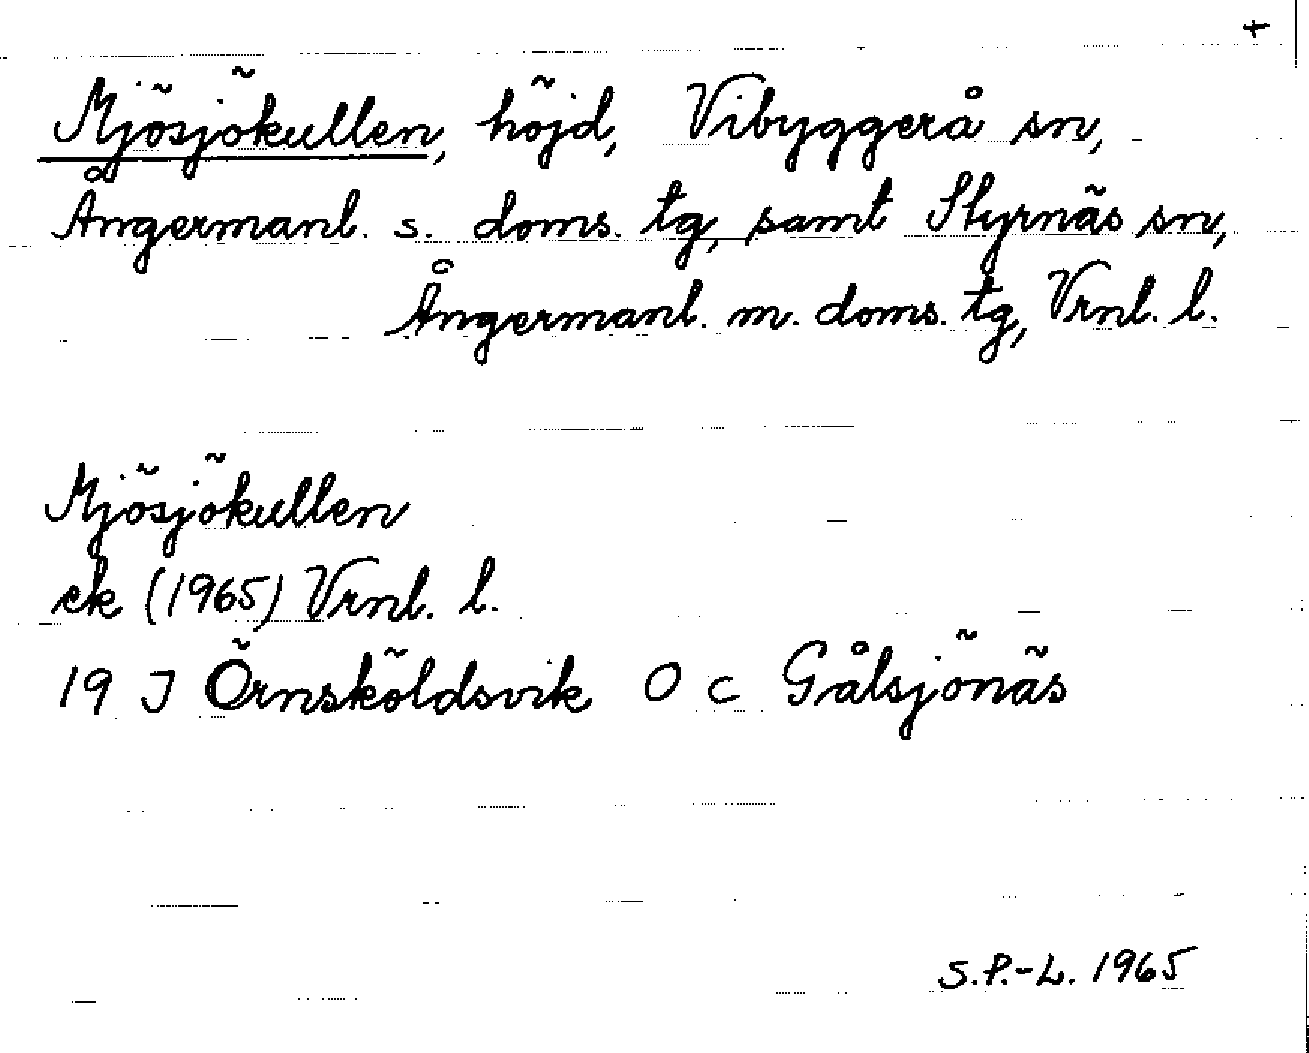 +
Mjösjökullen, höjd, Vibyggerå sn,
Ångermanl. s. doms. tg, samt Styrnäs sn,
Ångermanl. m. doms. tg, Vrnl. l.
Mjösjökullen
ek (1965) Vrnl. l.
19 J Örnsköldsvik O c Gålsjönäs
S.P.-L. 1965